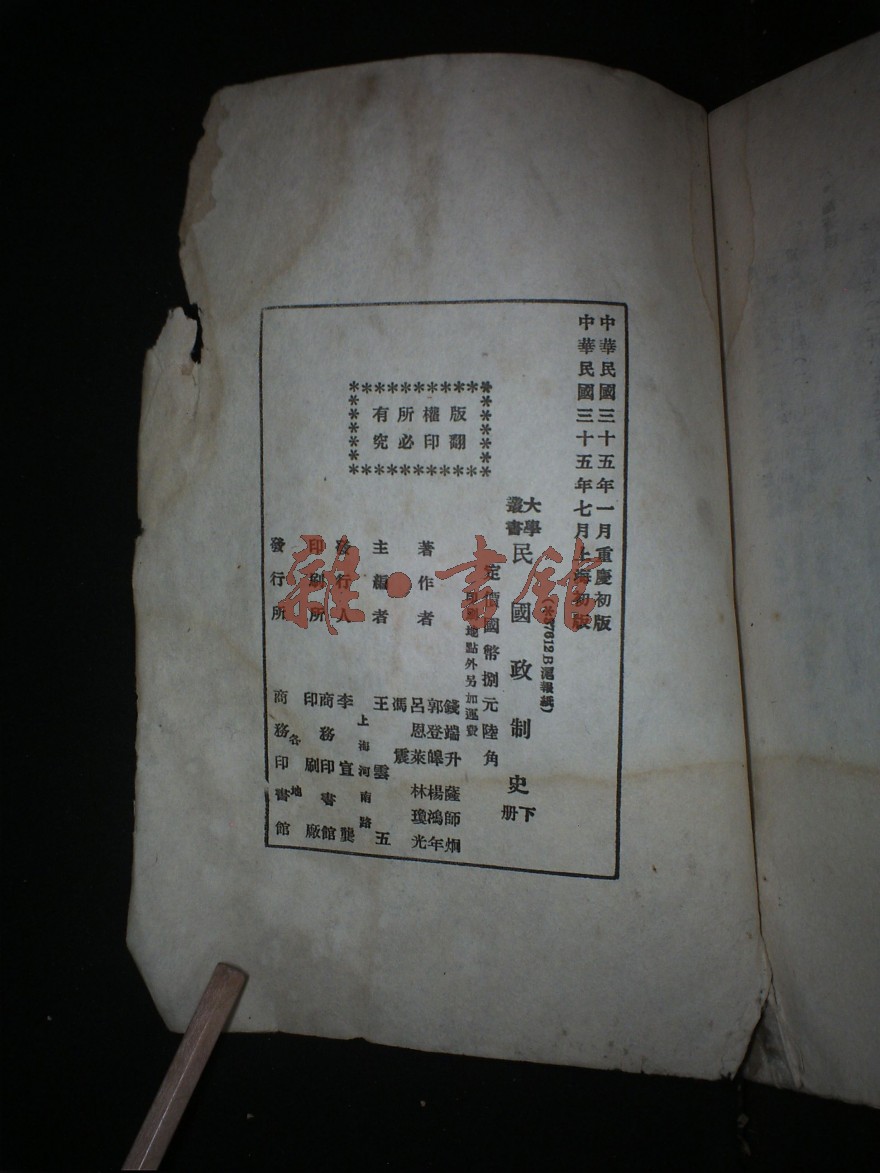 中華民國三十五年一月重慶初版
中華民國三十五年七月上海初版
大學
叢書
民國政制史
下
册
57612B滬報紙)
定價國幣捌元陸角
地點外另加運費
著作者
錢端升 薩師炯
郭登皞 楊鴻年
呂恩萊 林瓊光
馮震
主編者
王雲五
發行人
李宣龔
上海河南路
印刷所
商務印書館
印刷廠
發行所
商務印書館
各地
版權所有
翻印必究
雜·書館